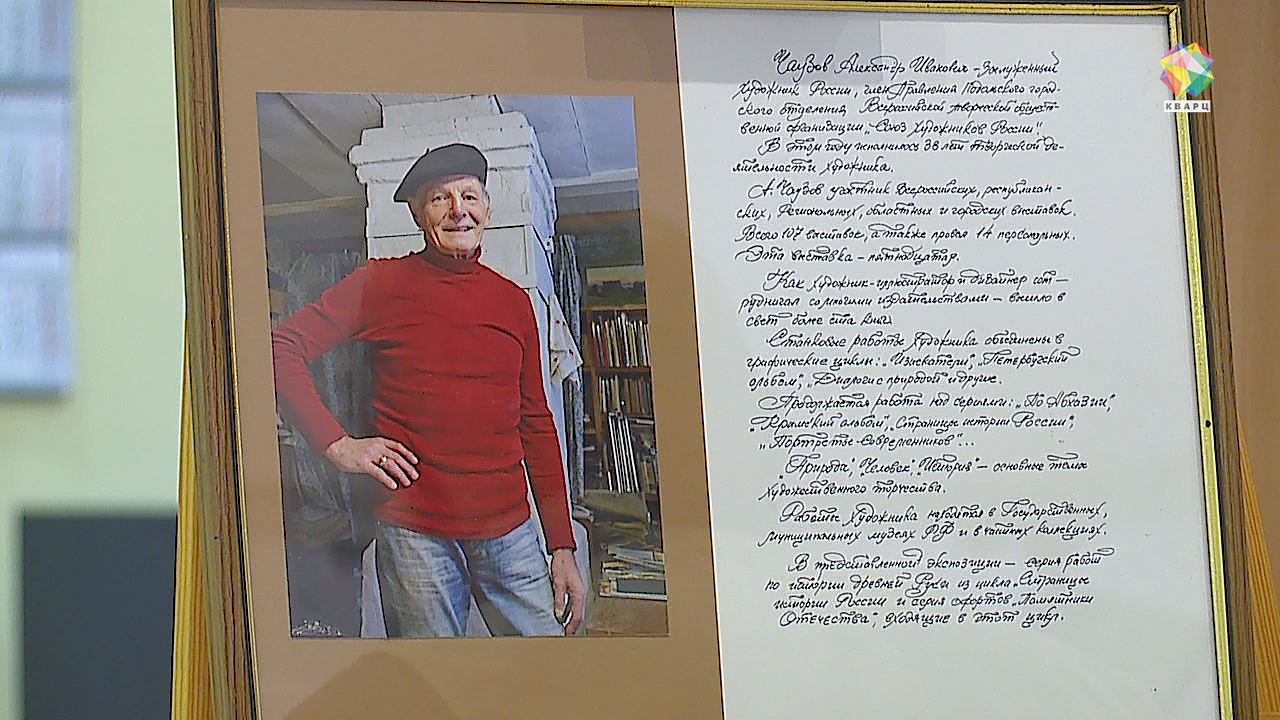 Чаузов Александр Иванович – Заслуженный
художник России, член Правления Подольского город-
ского отделения Всероссийской творческой общест-
венной организации „Союз художников России".
В этом году исполнилось 38 лет творческой де-
ятельности художника.
А. Чаузов участник Всероссийских, республикан-
ских, региональных, областных и городских выставок.
Всего 107 выставок, а также провёл 14 персональных.
Эта выставка – пятнадцатая.
Как художник-иллюстратор и дизайнер сот-
рудничал со многими издательствами – вышло в
свет более ста книг.
Станковые работы художника объединены в
графические циклы: „Изыскатели", „Петербургский
альбом", „Диалоги с природой" и другие.
Продолжается работа над сериями: „По Абхазии",
„Крымский альбом", „Страницы истории России",
„Портреты современников"...
„Природа", „Человек", „История" – основные темы
художественного творчества.
Работы художника находятся в Государственных,
муниципальных музеях РФ и в частных коллекциях.
В представленной экспозиции – серия работ
по истории древней Руси из цикла „Страницы
истории России" и серия офортов „Памятники
Отечества", входящие в этот цикл.
КВАРЦ